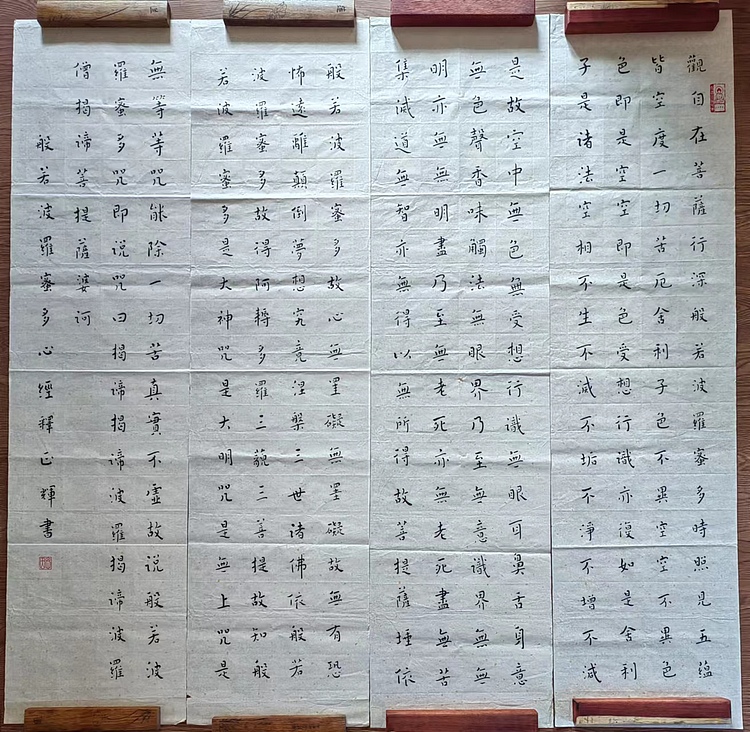 觀自在菩薩行深般若波羅蜜多時照見五蘊
皆空度一切苦厄舍利子色不異空空不異色
色即是空空即是色受想行識亦復如是舍利
子是諸法空相不生不滅不垢不淨不增不減
是故空中無色無受想行識無眼耳鼻舌身意
無色聲香味觸法無眼界乃至無意識界無無
明亦無無明盡乃至無老死亦無老死盡無苦
集滅道無智亦無得以無所得故菩提薩埵依
般若波羅蜜多故心無罣礙無罣礙故無有恐
怖遠離顛倒夢想究竟涅槃三世諸佛依般若
波羅蜜多故得阿耨多羅三藐三菩提故知般
若波羅蜜多是大神咒是大明咒是無上咒是
無等等咒能除一切苦真實不虛故說般若波
羅蜜多咒即說咒曰揭諦揭諦波羅揭諦波羅
僧揭諦菩提薩婆訶
般若波羅蜜多心經釋正輝書